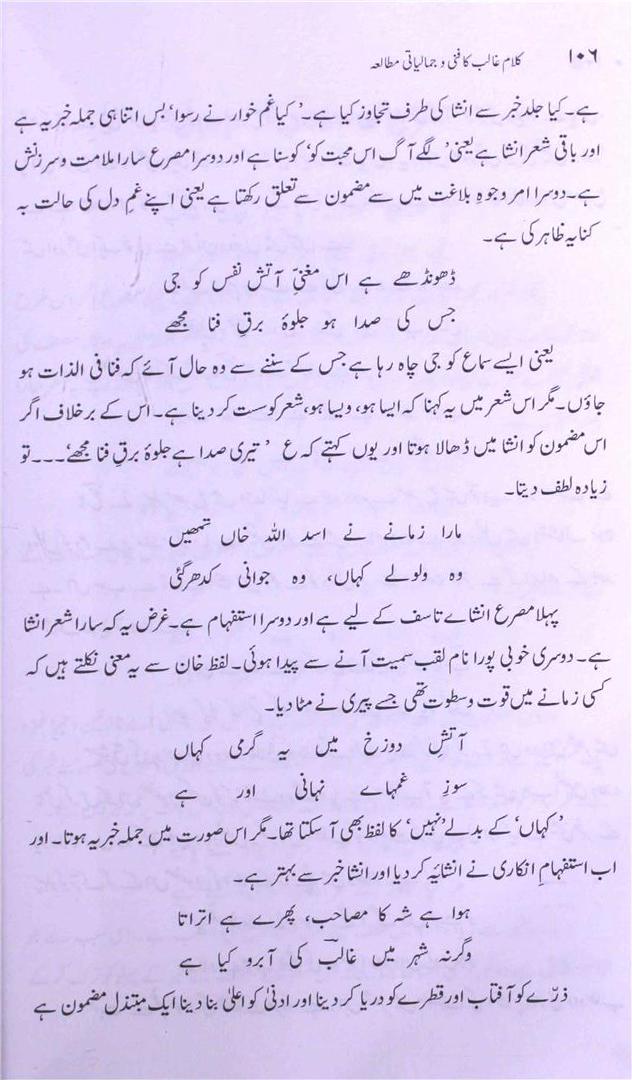 ۱۰۶ کلام غالب کا فنی و جمالیاتی مطالعہ
ہے۔ کیا جلد خبر سے انشا کی طرف تجاوز کیا ہے۔ ’کیا غم خوار نے رسوا‘ بس اتنا ہی جملہ خبریہ ہے
اور باقی شعر انشا ہے یعنی ’لگے آگ اس محبت کو‘ کوسنا ہے اور دوسرا مصرع سارا ملامت و سرزنش
ہے۔ دوسرا امر وجوہِ بلاغت میں سے مضمون سے تعلق رکھتا ہے یعنی اپنے غمِ دل کی حالت بہ
کنایہ ظاہر کی ہے۔
ڈھونڈھے ہے اس مغنّیِ آتش نفس کو جی
جس کی صدا ہو جلوۂ برقِ فنا مجھے
یعنی ایسے سماع کو جی چاہ رہا ہے جس کے سننے سے وہ حال آئے کہ فنا فی الذات ہو
جاؤں۔ مگر اس شعر میں یہ کہنا کہ ایسا ہو، ویسا ہو، شعر کو سست کر دینا ہے۔ اس کے برخلاف اگر
اس مضمون کو انشا میں ڈھالا ہوتا اور یوں کہتے کہ ع ’تیری صدا ہے جلوۂ برقِ فنا مجھے‘۔۔۔ تو
زیادہ لطف دیتا۔
مارا زمانے نے اسد اللہ خاں تمھیں
وہ ولولے کہاں، وہ جوانی کدھر گئی
پہلا مصرع انشاے تاسف کے لیے ہے اور دوسرا استفہام ہے۔ غرض یہ کہ سارا شعر انشا
ہے۔ دوسری خوبی پورا نام لقب سمیت آنے سے پیدا ہوئی۔ لفظ خان سے یہ معنی نکلتے ہیں کہ
کسی زمانے میں قوت و سطوت تھی جسے پیری نے مٹا دیا۔
آتشِ دوزخ میں یہ گرمی کہاں
سوزِ غمہاے نہانی اور ہے
’کہاں‘ کے بدلے ’نہیں‘ کا لفظ بھی آ سکتا تھا۔ مگر اس صورت میں جملہ خبریہ ہوتا۔ اور
اب استفہامِ انکاری نے انشائیہ کر دیا اور انشا خبر سے بہتر ہے۔
ہوا ہے شہ کا مصاحب، پھرے ہے اتراتا
وگرنہ شہر میں غالبؔ کی آبرو کیا ہے
ذرّے کو آفتاب اور قطرے کو دریا کر دینا اور ادنیٰ کو اعلیٰ بنا دینا ایک مبتذل مضمون ہے